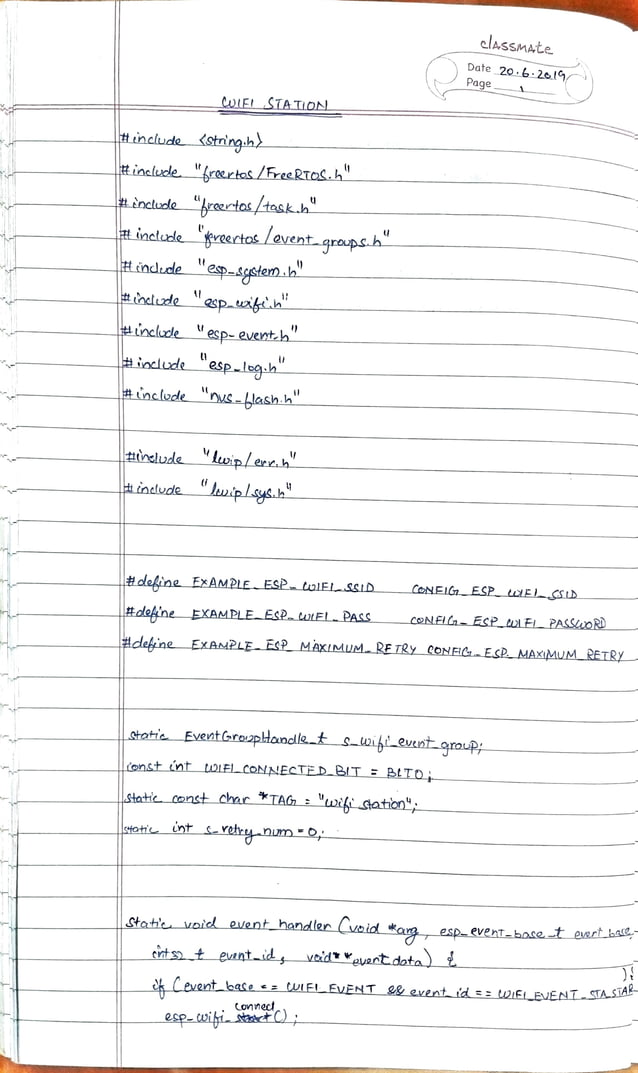 classmate
Date 20.6.2019
Page 1
WIFI STATION
#include <string.h>
#include "freertos/FreeRTOS.h"
#include "freertos/task.h"
#include "freertos/event_groups.h"
#include "esp_system.h"
#include "esp_wifi.h"
#include "esp_event.h"
#include "esp_log.h"
#include "nvs_flash.h"
#include "lwip/err.h"
#include "lwip/sys.h"
#define EXAMPLE_ESP_WIFI_SSID CONFIG_ESP_WIFI_SSID
#define EXAMPLE_ESP_WIFI_PASS CONFIG_ESP_WIFI_PASSWORD
#define EXAMPLE_ESP_MAXIMUM_RETRY CONFIG_ESP_MAXIMUM_RETRY
static EventGroupHandle_t s_wifi_event_group;
const int WIFI_CONNECTED_BIT = BIT0;
static const char *TAG = "wifi station";
static int s_retry_num = 0;
static void event_handler (void *arg, esp_event_base_t event_base,
int32_t event_id, void* *event data) {
if (event_base == WIFI_EVENT && event_id == WIFI_EVENT_STA_START) {
esp_wifi_connect();